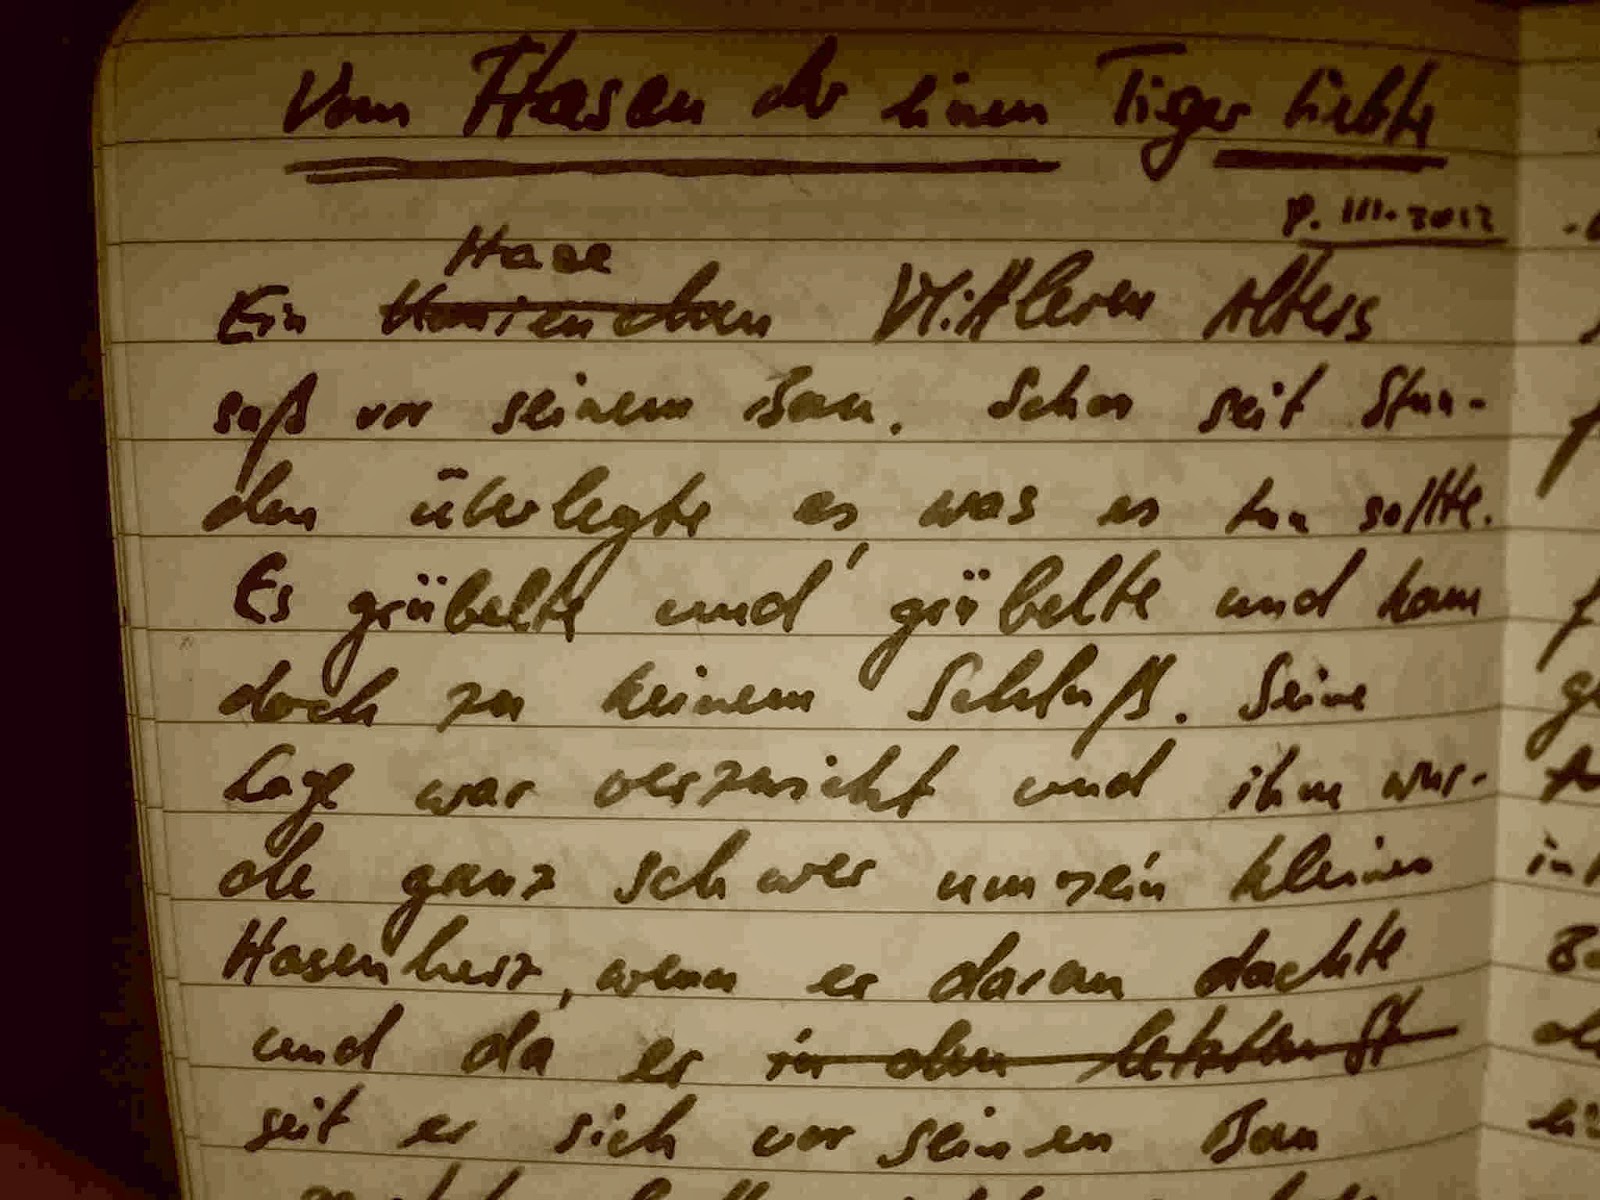 Vom Hasen der einen Tiger liebte
III. 2012
Hase
Ein Mittleren Alters
saß vor seinem Bau. Schon seit Stun-
den überlegte es, was es tun sollte.
Es grübelte und grübelte und kam
doch zu keinem Schluß. Seine
Lage war verzwickt und ihm wur-
de ganz schwer um sein kleines
Hasenherz, wenn er daran dachte
und da er in den letzten St
seit er sich vor seinen Bau